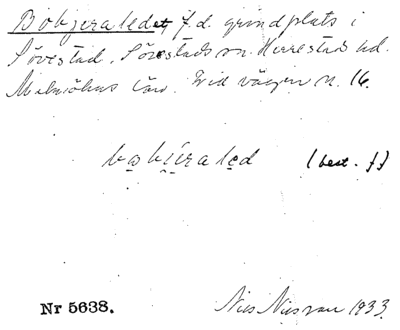 Bobjeraledet, f.d. grindplats i
Sövestad, Sövestads sn. Herrestads hd.
Malmöhus län. Vid vägen n. 16.
bobjiraled (best. f.)
Nr 5638. Nils Nilsson 1933.